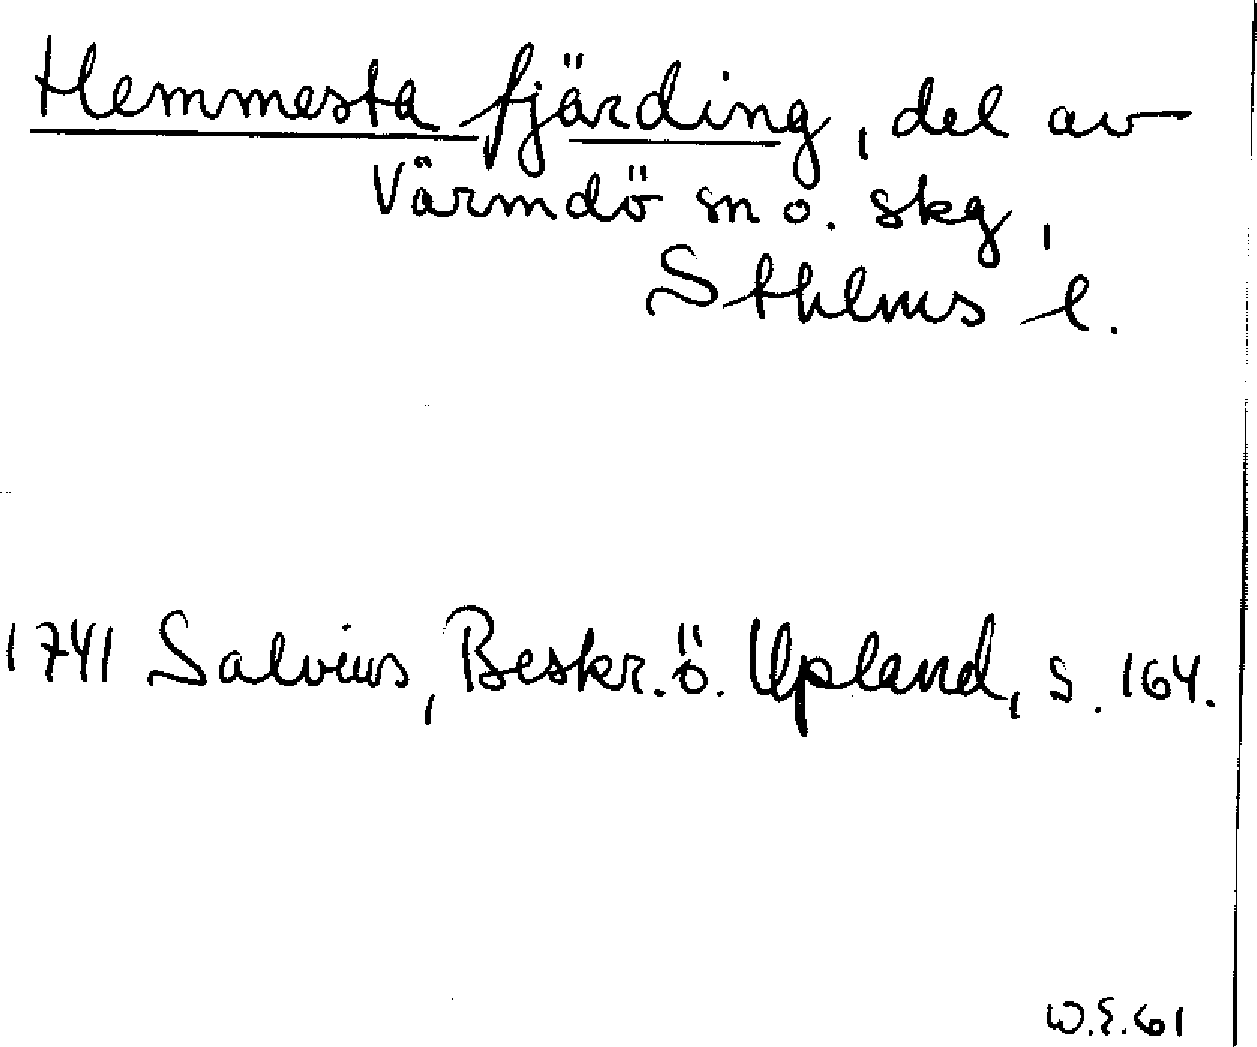 Hemmesta fjärding, del av
Värmdö sn o. skg,
Sthlms l.
1741 Salvius, Beskr. ö. Upland, s. 164.
W.E. 61